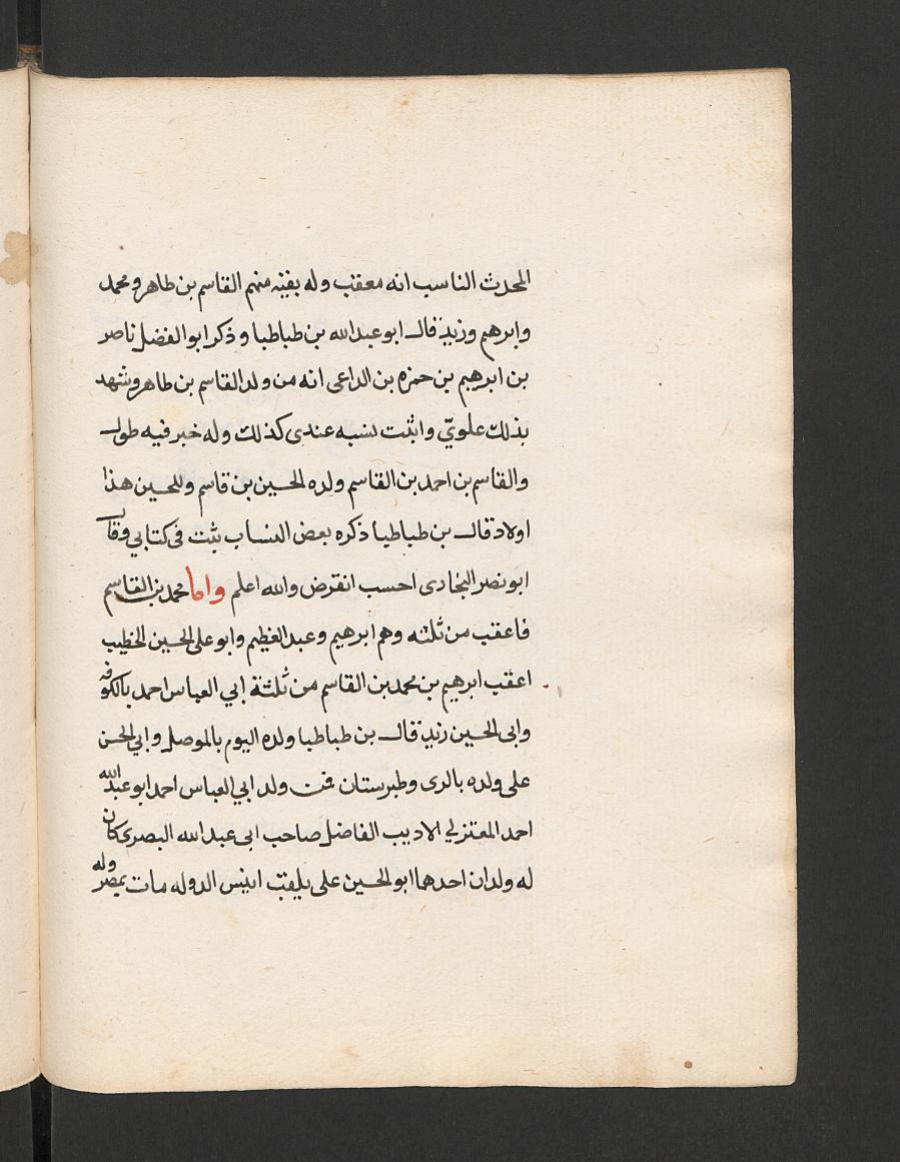 المحدث الناسب انه معقب وله بقيه منهم القاسم بن طاهر ومحمد
وابرهيم وزيد قال ابو عبد الله بن طباطبا وذكر ابو الفضل ناصر
بن ابرهيم بن حمزه بن الداعى انه من ولد القاسم بن طاهر وشهد
بذلك علويّ واثبت نسبه عندى كذلك وله خبر فيه طول
والقاسم بن احمد بن القاسم ولده الحسين بن قاسم وللحسين هذا
اولاد قال بن طباطبا ذكره بعض النساب يثبت فى كتابي وقال
ابو نصر البخارى احسب انقرض والله اعلم واما محمد بن القاسم
فاعقب من ثلثه وهم ابرهيم وعبد العظيم وابو على الحسين الخطيب
اعقب ابرهيم بن محمد بن القاسم من ثلثة ابي العباس احمد بالكوفه
وابى الحسين زيد قال بن طباطبا ولده اليوم بالموصل وابي الحسن
على ولده بالرى وطبرستان فمن ولد ابي العباس احمد ابو عبد الله
احمد المعتزلي الاديب الفاضل صاحب ابى عبد الله البصرى كان
له ولدان احدها ابو الحسين على يلقب انيس الدوله مات بمصر وله